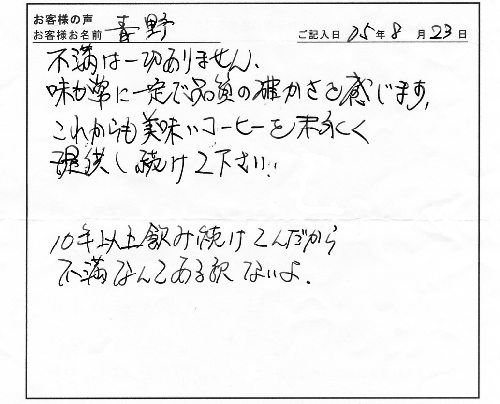 お客様の声
お客様お名前 青野 ご記入日 05年 8月 23日
不満は一切ありません、
味が常に一定で品質の確かさを感じます。
これからも美味いコーヒーを末永く
提供し続けて下さい。
10年以上飲み続けてんだから
不満なんてある訳ないよ。